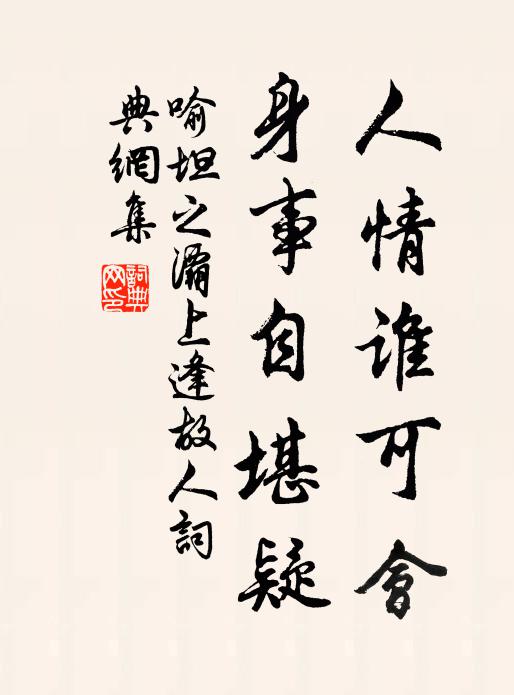 人情誰可會
身事自堪疑
喻坦之灞上逢故人詞
典網集
詞典
网印